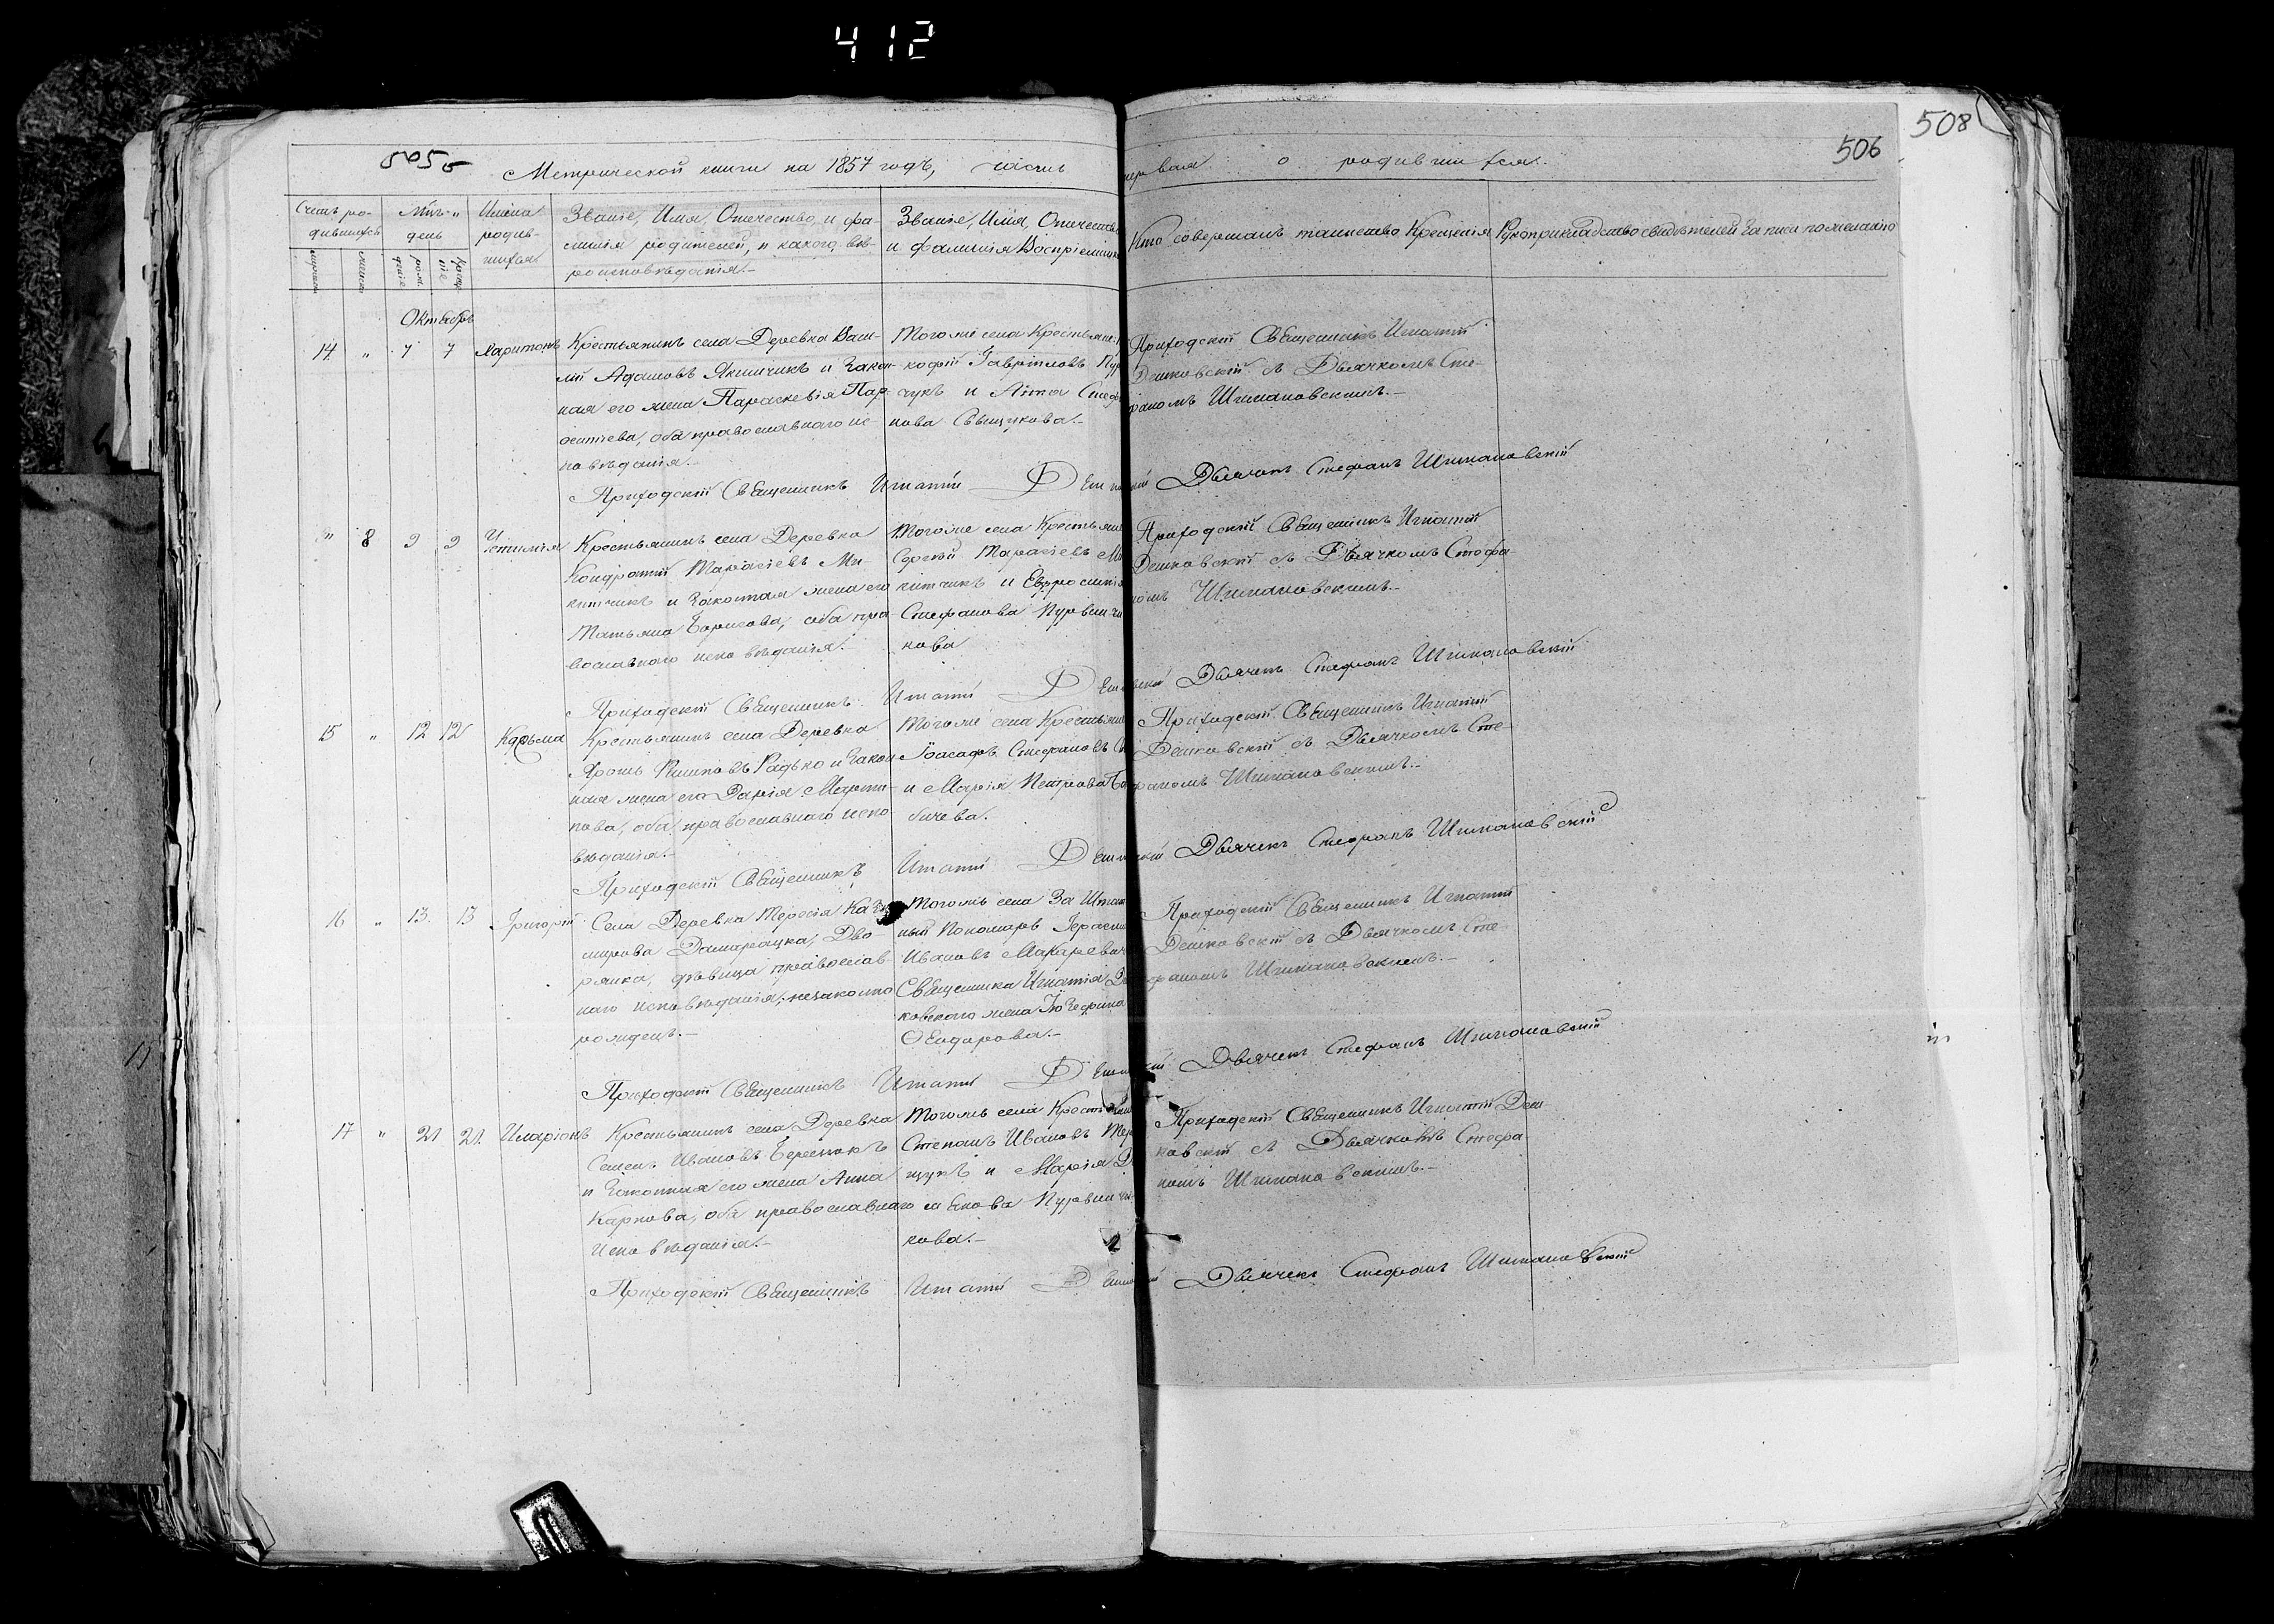 412
508
506
505б
Метрической книги на 1857 годъ, часть первая о родившихся.
Счетъ родившихся
Мѣс. день
Имена родившихся
Званіе, Имя, Отчество, и фамилія родителей, и какого вѣроисповѣданія.
Званіе, Имя, Отчество и фамилія Воспріемник
Кто совершалъ таинство Крещенія
Рукоприкладство свидѣтелей записи по желанію
Октябрь
14 " 7 7 Харитонъ
Крестьянинъ села Деревка Васи-
лій Адамовъ Якимчикъ и закон-
ная его жена Параскевія
оба православнаго ис-
повѣданія.-
Тогоже села Крестьянин
кофій Гавріиловъ
чукъ и Анна Стеф
нова
Приходскій Священникъ Игнатій
Дешковскій съ Дьячкомъ Сте-
фаномъ Шимановскимъ.-
Приходскій Священникъ Игнатій Дешковскій Дьячекъ Стефанъ Шимановскій
" 8 9 9 Іустинія
Крестьянинъ села Деревка
Кондратій Тарасіевъ Ми-
китчикъ и законная жена его
Татьяна Борисова, оба пра
вославнаго исповѣданія.
Тогоже села Крестьянин
Сергѣй Тарасіевъ Ми
китчикъ и Евфросинія
Стефанова Пурвинчи
кова
Приходскій Священникъ Игнатій
Дешковскій съ Дьячкомъ Стефа-
номъ Шимановскимъ.-
Приходскій Священникъ Игнатій Дешковскій Дьячекъ Стефанъ Шимановскій
15 " 12 12 Козьма
Крестьянинъ села Деревка
Радько и закон
ная жена его Дарія Марти-
нова, оба православнаго испо
вѣданія.-
Тогоже села Крестьянин
Іоасафъ Стефановъ
и Марія Петрова
бичева.
Приходскій Священникъ Игнатій
Дешковскій съ Дьячкомъ Сте-
фаномъ Шимановскимъ.-
Приходскій Священникъ Игнатій Дешковскій Дьячекъ Стефанъ Шимановскій
16 " 13 13 Григорій
Села Деревка Тересія Кази
мирова Домарацка, Дво-
рянка, дѣвица православ-
наго исповѣданія, незаконно
рожденъ.-
Тогожъ села За Штат
ный Пономарь Герасим
Ивановъ Макаревич
Священника Игнатія Де
ковскаго жена Іозефина
Ѳеодорова.-
Приходскій Священникъ Игнатій
Дешковскій съ Дьячкомъ Сте-
фаномъ Шимановскимъ.-
Приходскій Священникъ Игнатій Дешковскій Дьячекъ Стефанъ Шимановскій
17 " 21 21 Иларіонъ
Крестьянинъ села Деревка
Семенъ Ивановъ Беренокъ
и законная его жена Анна
Карпова, оба православнаго
исповѣданія.-
Тогожъ села Крестьянин
Степанъ Ивановъ Тере
щукъ и Марія Д
Пурвинчи-
кова.-
Приходскій Священникъ Игнатій Деш
ковскій съ Дьячковъ Стефа-
номъ Шимановскимъ.-
Приходскій Священникъ Игнатій Дешковскій Дьячекъ Стефанъ Шимановскій